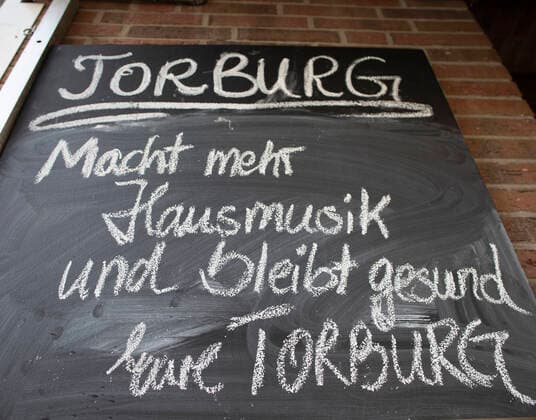 TORBURG
Macht mehr
Hausmusik
und bleibt gesund
Eure TORBURG